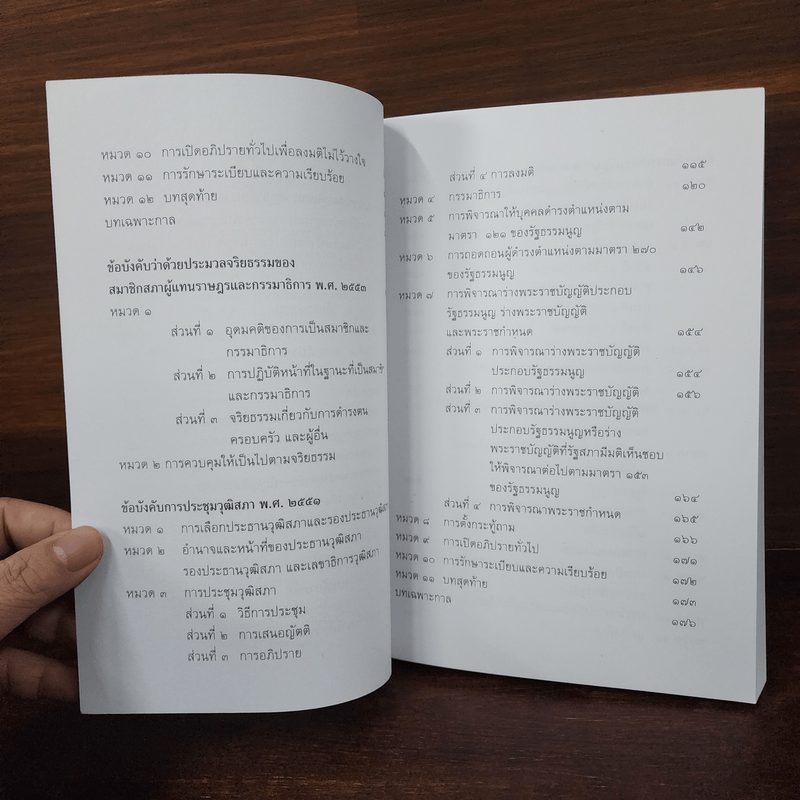 หมวด ๑๐ การเปิดอภิปรายทั่วไปเพื่อลงมติไม่ไว้วางใจ
หมวด ๑๑ การรักษาระเบียบและความเรียบร้อย
หมวด ๑๒ บทสุดท้าย
บทเฉพาะกาล
ข้อบังคับว่าด้วยประมวลจริยธรรมของ
สมาชิกสภาผู้แทนราษฎรและกรรมาธิการ พ.ศ. ๒๕๕๓
หมวด ๑
ส่วนที่ ๑ อุดมคติของการเป็นสมาชิกและ
กรรมาธิการ
ส่วนที่ ๒ การปฏิบัติหน้าที่ในฐานะที่เป็นสมาชิ
และกรรมาธิการ
ส่วนที่ ๓ จริยธรรมเกี่ยวกับการดำรงตน
ครอบครัว และผู้อื่น
หมวด ๒ การควบคุมให้เป็นไปตามจริยธรรม
ข้อบังคับการประชุมวุฒิสภา พ.ศ. ๒๕๕๑
หมวด ๑ การเลือกประธานวุฒิสภาและรองประธานวุฒิสภา
หมวด ๒ อำนาจและหน้าที่ของประธานวุฒิสภา
รองประธานวุฒิสภา และเลขาธิการวุฒิสภา
หมวด ๓ การประชุมวุฒิสภา
ส่วนที่ ๑ วิธีการประชุม
ส่วนที่ ๒ การเสนอญัตติ
ส่วนที่ ๓ การอภิปราย
ส่วนที่ ๔ การลงมติ ๑๑๕
หมวด ๔ กรรมาธิการ ๑๒๐
หมวด ๕ การพิจารณาให้บุคคลดำรงตำแหน่งตาม
มาตรา ๑๒๑ ของรัฐธรรมนูญ ๑๔๒
หมวด ๖ การถอดถอนผู้ดำรงตำแหน่งตามมาตรา ๒๗๐
ของรัฐธรรมนูญ ๑๔๖
หมวด ๗ การพิจารณาร่างพระราชบัญญัติประกอบ
รัฐธรรมนูญ ร่างพระราชบัญญัติ
และพระราชกำหนด ๑๕๔
ส่วนที่ ๑ การพิจารณาร่างพระราชบัญญัติ
ประกอบรัฐธรรมนูญ ๑๕๔
ส่วนที่ ๒ การพิจารณาร่างพระราชบัญญัติ ๑๕๖
ส่วนที่ ๓ การพิจารณาร่างพระราชบัญญัติ
ประกอบรัฐธรรมนูญหรือร่าง
พระราชบัญญัติที่รัฐสภามีมติเห็นชอบ
ให้พิจารณาต่อไปตามมาตรา ๑๕๓
ของรัฐธรรมนูญ ๑๖๔
ส่วนที่ ๔ การพิจารณาพระราชกำหนด ๑๖๕
หมวด ๘ การตั้งกระทู้ถาม ๑๖๖
หมวด ๙ การเปิดอภิปรายทั่วไป ๑๗๑
หมวด ๑๐ การรักษาระเบียบและความเรียบร้อย ๑๗๒
หมวด ๑๑ บทสุดท้าย ๑๗๓
บทเฉพาะกาล ๑๗๖